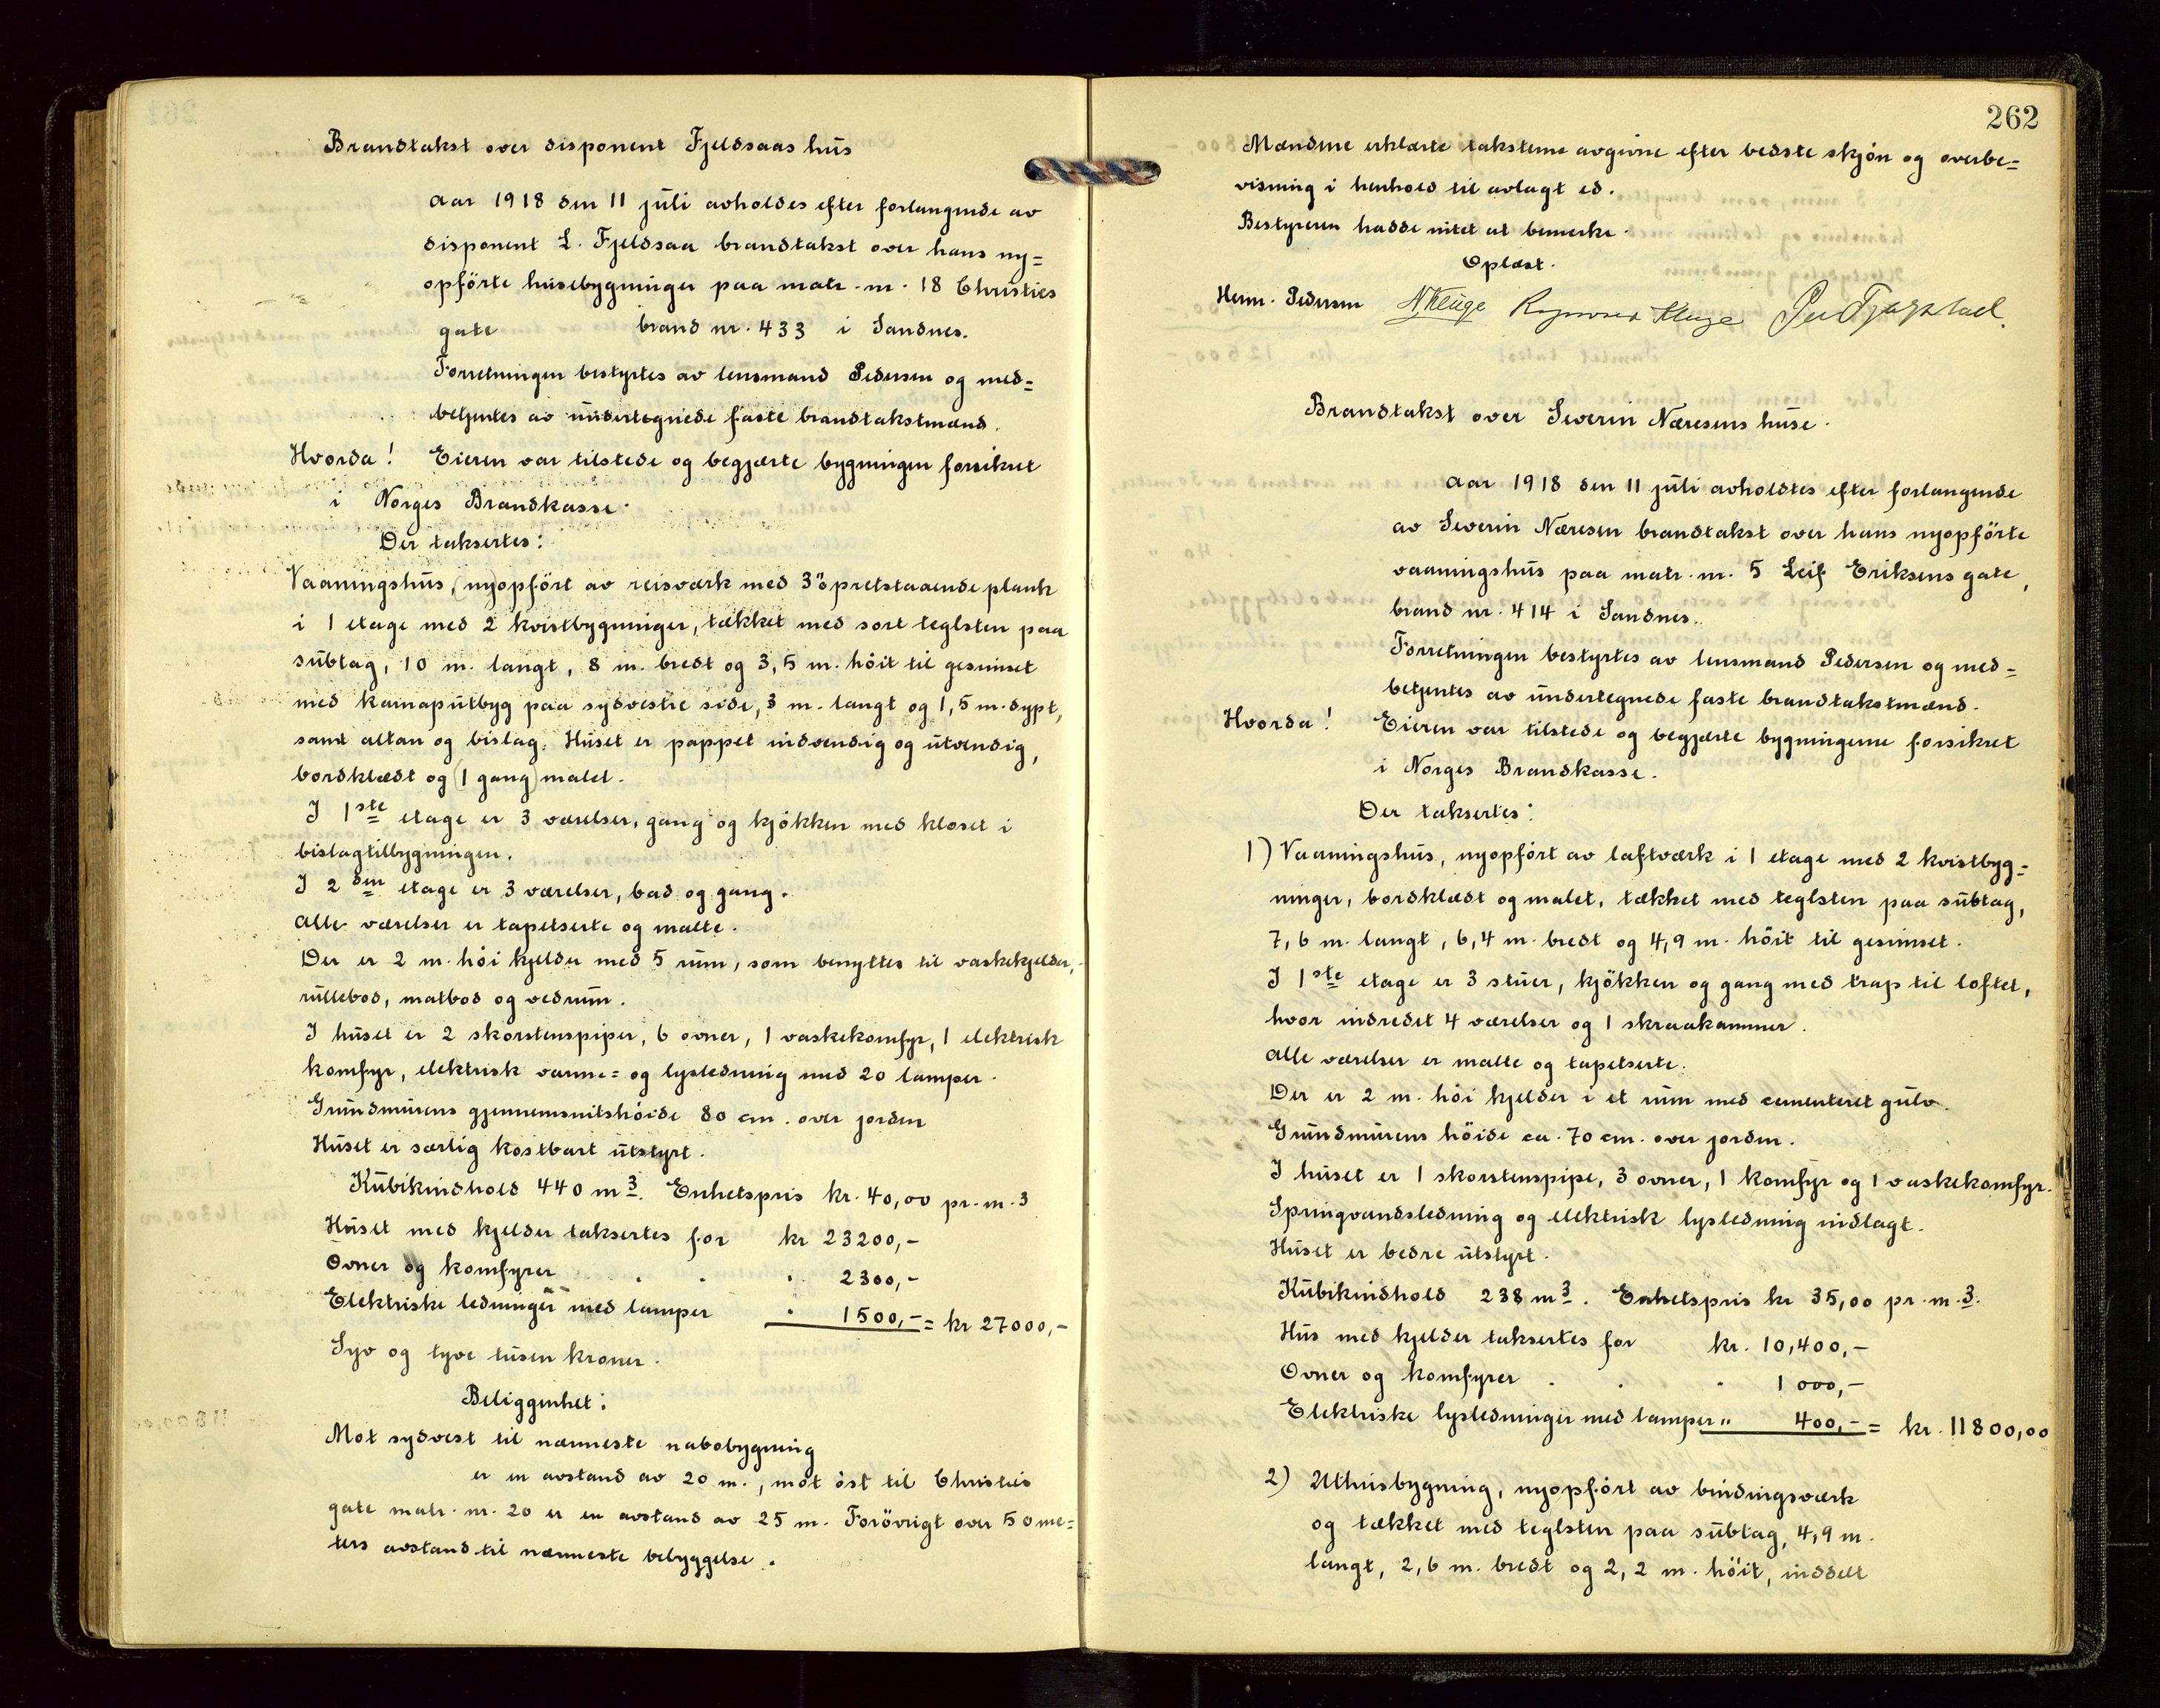 Brandtakst over disponent Fjeldsaas hus
Aar 1918 den 11 juli avholdes efter forlangende av
disponent L. Fjeldsaa brandtakst over hans ny=
opförte husebygninger paa matr. nr. 18 Christies
gate brand nr. 433 i Sandnes.
Forretningen bestyrtes av lensmand Pedersen og med=
betjentes av undertegnede faste brandtakstmænd.
Hvorda! Eieren var tilstede og begjærte bygningen forsikret
i Norges Brandkasse.
Der taksertes:
Vaaningshus, (ny)opfört av reisværk med 3" opretstaaende plank
i 1 etage med 2 kvistbygninger, tækket med sort teglsten paa
subtag, 10 m. langt, 8 m. bredt og 3,5 m. höit til gesimset
med karnaputbyg paa sydvestre side, 3 m. langt og 1,5 m. dypt,
samt altan og bislag. Huset er pappet indvendig og utvendig,
bordklædt og (1 gang) malet.
I 1ste etage er 3 værelser, gang og kjökken med kloset i
bislagtilbygningen.
I 2den etage er 3 værelser, bad og gang.
Alle værelser er tapetserte og malte.
Der er 2 m. höi kjelder med 5 rum, som benyttes til vaskekjelder,
rullebod, matbod og vedrum.
I huset er 2 skorstenspiper, 6 ovner, 1 vaskekomfyr, 1 elektrisk
komfyr, elektrisk varme= og lysledning med 20 lamper.
Grundmurens gjennemsnitshöide 80 cm. over jorden
Huset er særlig kostbart utstyrt.
Kubikindhold 440 m3. Enhetspris kr. 40,00 pr. m. 3
Huset med kjelder taksertes for kr 23200,-
Ovner og komfyrer . . . 2300,-
Elektriske ledninger med lamper . 1500,- = kr 27000,-
Syv og tyve tusen kroner.
Beliggenhet:
Mot sydvest til nærmeste nabobygning
er en avstand av 20 m., mot öst til Christies
gate matr. nr. 20 er en avstand av 25 m. Forövrigt over 50 me=
ters avstand til nærmeste bebyggelse.
262
Mændene erklærte taksterne avgivne efter bedste skjön og overbe=
visning i henhold til avlagt ed.
Bestyreren hadde intet at bemerke.
Oplæst.
Herm. Pedersen N Kluge Rasmus Kluge
Brandtakst over Severin Næresens huse.
Aar 1918 den 11 juli avholdtes efter forlangende
av Severin Næresen brandtakst over hans nyopförte
vaaningshus paa matr. nr. 5 Leif Eriksens gate,
brand nr. 414 i Sandnes.
Forretningen bestyrtes av lensmand Pedersen og med=
betjentes av undertegnede faste brandtakstmænd.
Hvorda! Eieren var tilstede og begjærte bygningerne forsikret
i Norges Brandkasse.
Der taksertes:
1) Vaaningshus, nyopfört av laftværk i 1 etage med 2 kvistbyg=
ninger, bordklædt og malet, tækket med teglsten paa subtag,
7,6 m. langt, 6,4 m. bredt og 4,9 m. höit til gesimset.
I 1ste etage er 3 stuer, kjökken og gang med trap til loftet,
hvor indredet 4 værelser og 1 skraakammer.
Alle værelser er malte og tapetserte.
Der er 2 m. höi kjelder i et rum med cementeret gulv.
Grundmurens höide ca. 70 cm. over jorden.
I huset er 1 skorstenspipe, 3 ovner, 1 komfyr og 1 vaskekomfyr.
Springvandsledning og elektrisk lysledning indlagt.
Huset er bedre utstyrt.
Kubikindhold 238 m3. Enhetspris kr 35,00 pr. m. 3.
Hus med kjelder taksertes for kr. 10,400,-
Ovner og komfyrer . . . 1 000,-
Elektriske lysledninger med lamper " 400,- = kr. 11800,00
2) Uthusbygning, nyopfört av bindingsværk
og tækket med teglsten paa subtag, 4,9 m.
langt, 2,6 m. bredt og 2,2 m. höit, inddelt